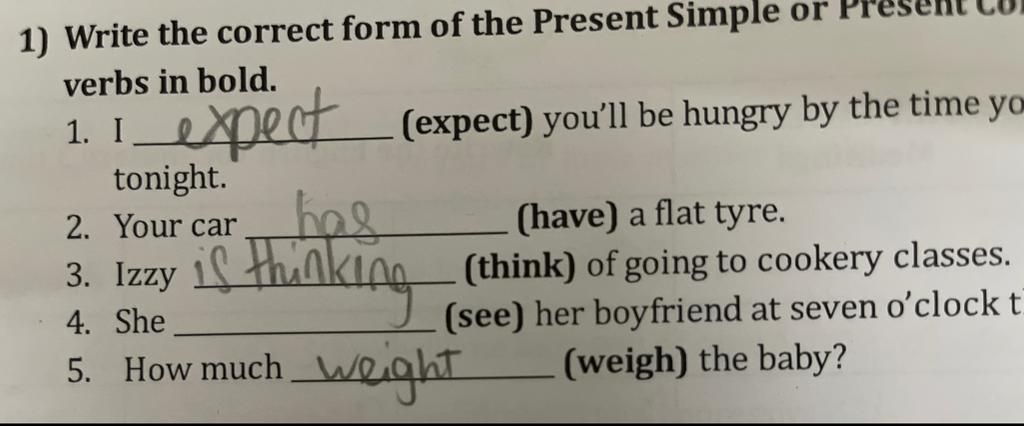 1) Write the correct form of the Present Simple or Present
verbs in bold.
1. I expect (expect) you'll be hungry by the time
tonight.
2. Your car has (have) a flat tyre.
3. Izzy is thinking (think) of going to cookery classes.
4. She ____________ (see) her boyfriend at seven o'clock
5. How much weight (weigh) the baby?